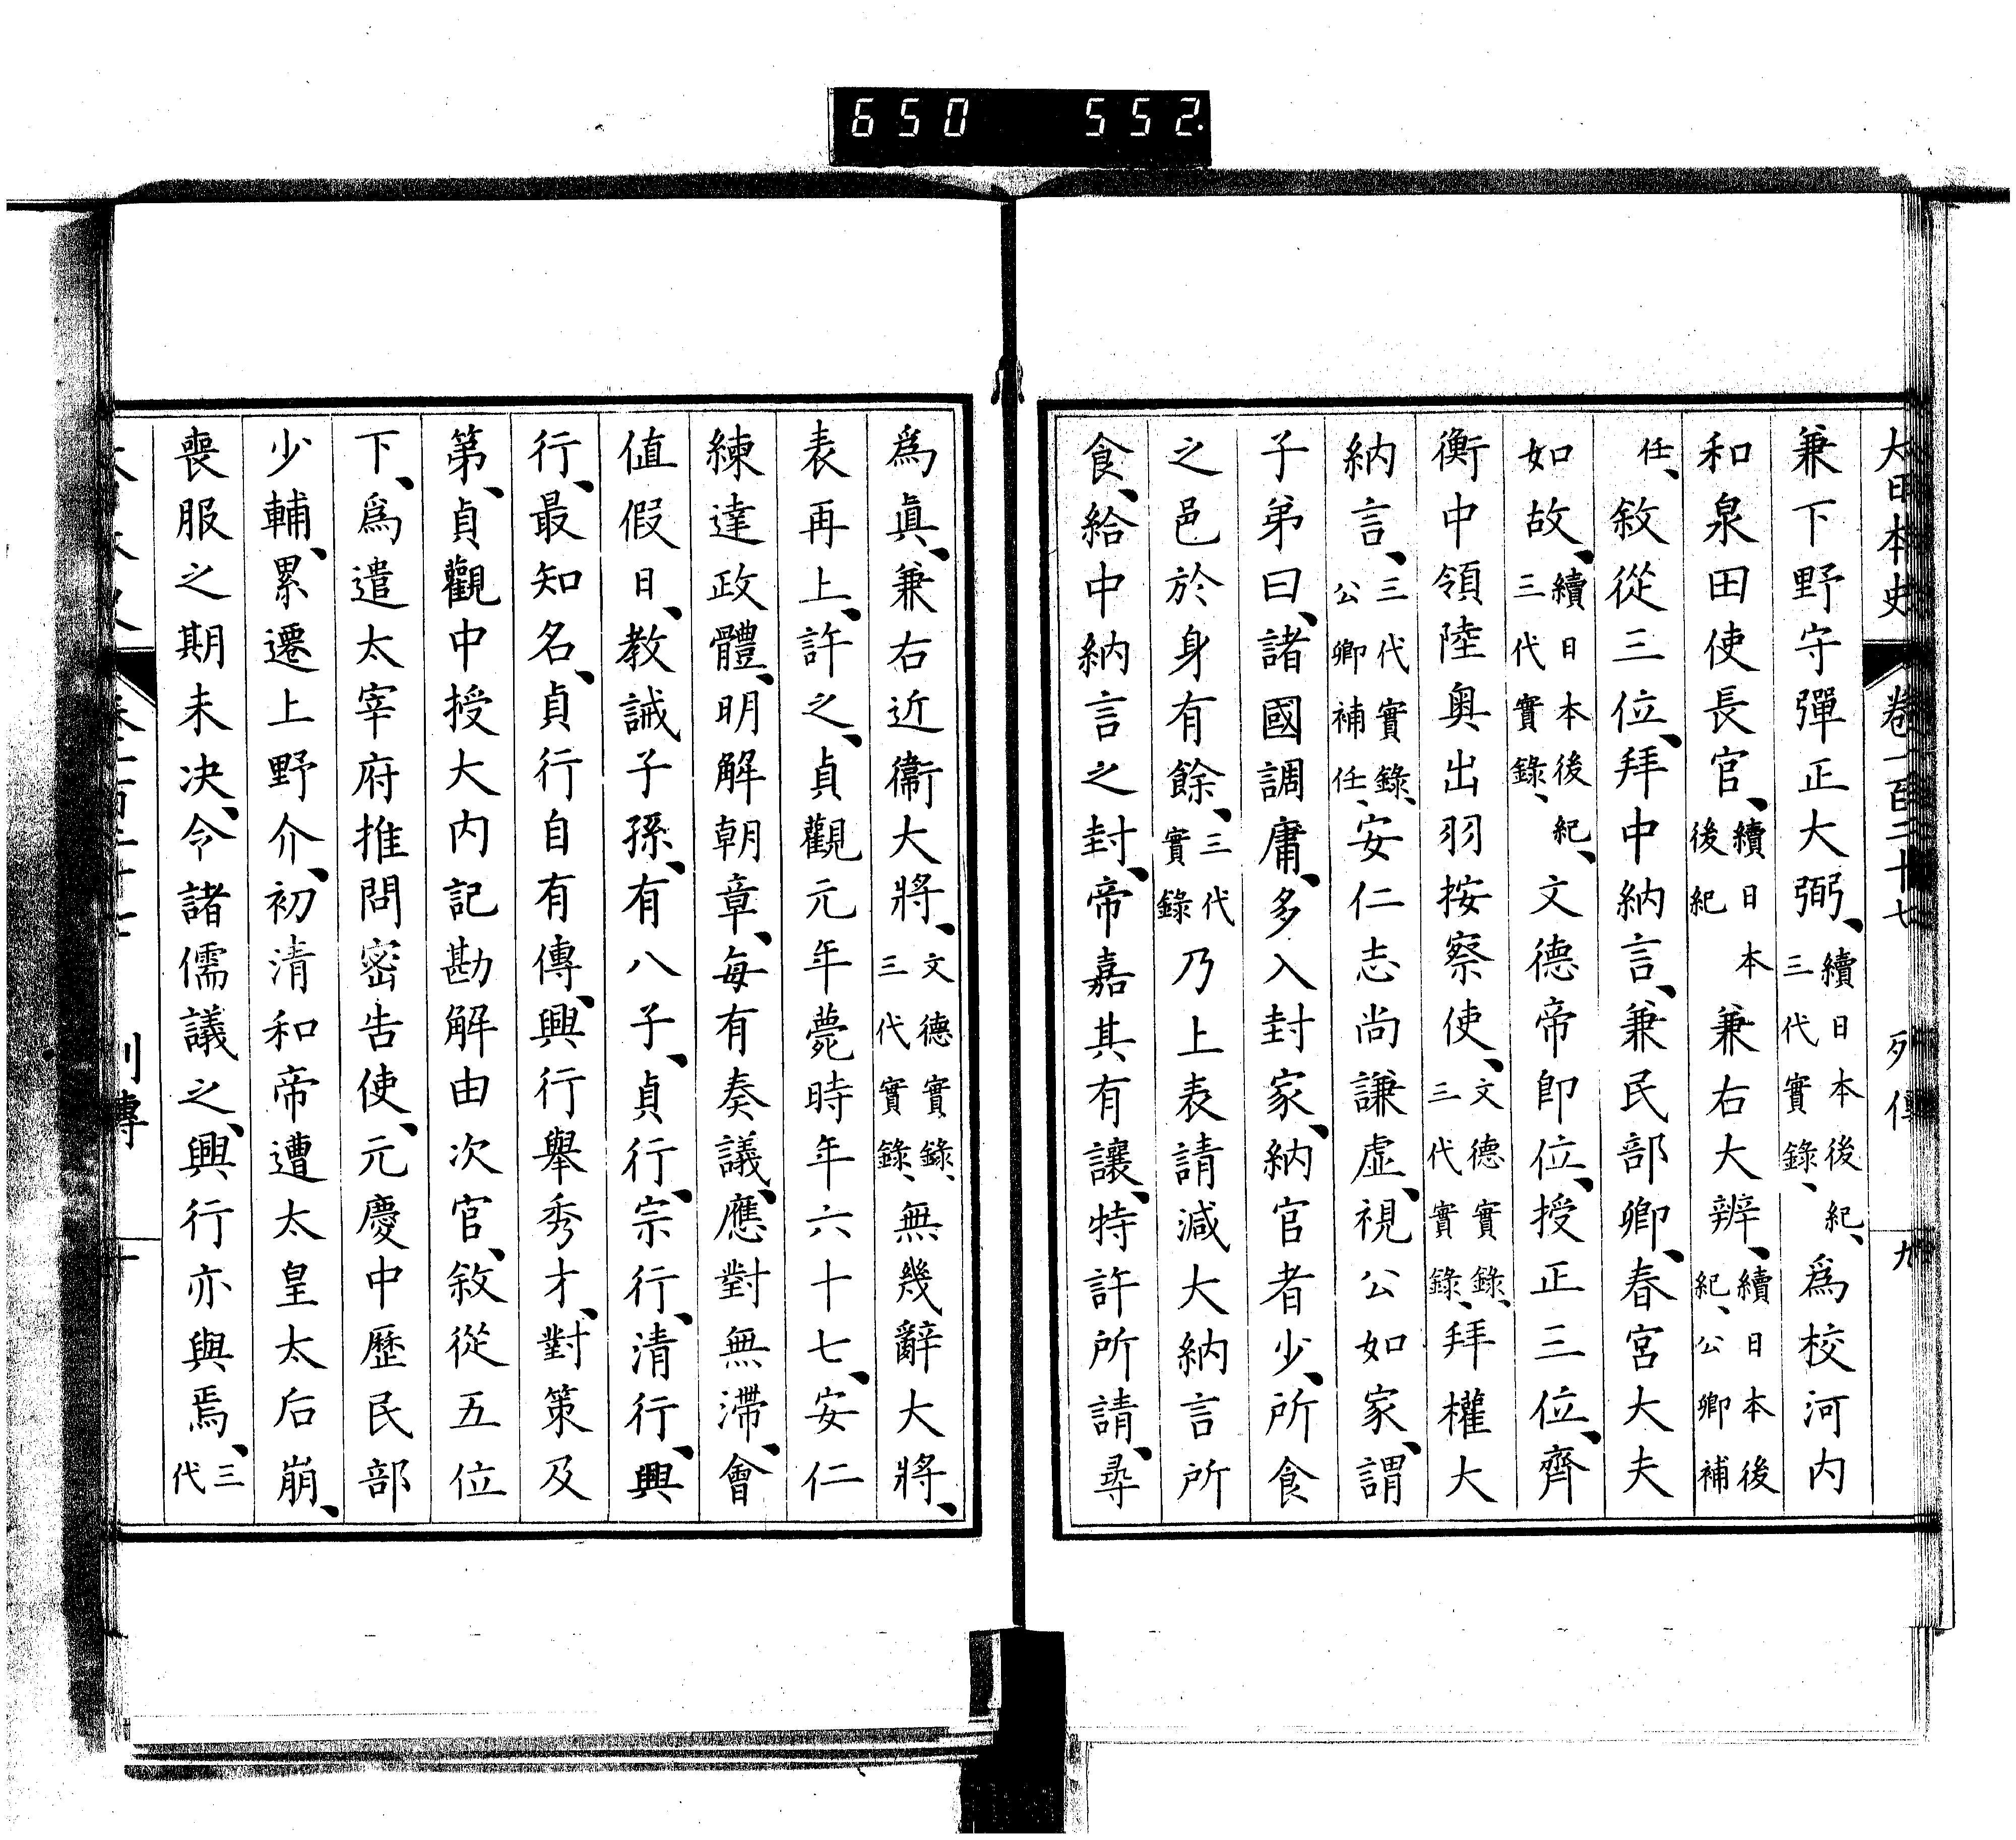 650 552.
大日本史 卷一百二十七 列傳 九
兼下野守彈正大弼、續日本後紀、三代實錄、爲校河内
和泉田使長官、續日本後紀兼右大辨、續日本後紀、公卿補
任、敘從三位、拜中納言、兼民部卿、春宮大夫
如故、續日本後紀、三代實錄、文德帝卽位、授正三位、齊
衡中領陸奥出羽按察使、文德實錄、三代實錄、拜權大
納言、三代實錄、公卿補任、安仁志尚謙虛、視公如家、謂
子弟曰、諸國調庸、多入封家、納官者少、所食
之邑於身有餘、三代實錄乃上表請減大納言所
食、給中納言之封、帝嘉其有讓、特許所請、尋
爲眞、兼右近衞大將、文德實錄、三代實錄、無幾辭大將、
表再上、許之、貞觀元年薨時年六十七、安仁
練達政體、明解朝章、每有奏議、應對無滯、會
値假日、教誡子孫、有八子、貞行、宗行、清行、興
行、最知名、貞行自有傳、興行舉秀才、對策及
第、貞觀中授大内記勘解由次官、敘從五位
下、爲遣太宰府推問密告使、元慶中歷民部
少輔、累遷上野介、初清和帝遭太皇太后崩、
喪服之期未决、令諸儒議之、興行亦與焉、三代
列傳